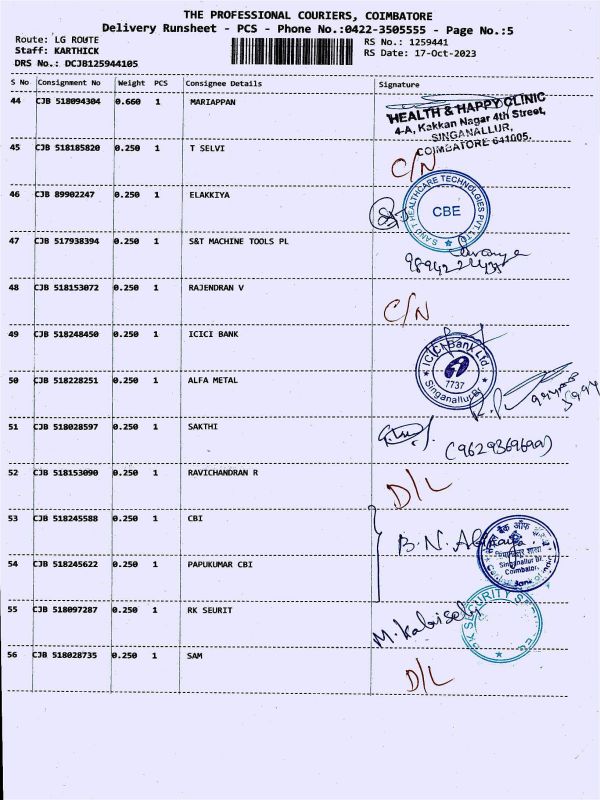 THE PROFESSIONAL COURIERS, COIMBATORE
Delivery Runsheet - PCS - Phone No.:0422-3505555 - Page No.:5
Route: LG ROUTE
RS No.: 1259441
Staff: KARTHICK
RS Date: 17-Oct-2023
DRS No.: DCJB125944105
S No Consignment No Weight PCS Consignee Details Signature
44 CJB 518094304 0.660 1 MARIAPPAN
HEALTH & HAPPY CLINIC
4-A, Kakkan Nagar 4th Street,
SINGANALLUR,
COIMBATORE 641005.
45 CJB 518185820 0.250 1 T SELVI
C/N
46 CJB 89902247 0.250 1 ELAKKIYA
S AND T HEALTHCARE TECHNOLOGIES PVT LTD
CBE
47 CJB 517938394 0.250 1 S&T MACHINE TOOLS PL
48 CJB 518153072 0.250 1 RAJENDRAN V
C/N
49 CJB 518248450 0.250 1 ICICI BANK
ICICI Bank Ltd.
7737
Singanallur Br
50 CJB 518228251 0.250 1 ALFA METAL
51 CJB 518028597 0.250 1 SAKTHI
52 CJB 518153090 0.250 1 RAVICHANDRAN R
D/L
53 CJB 518245588 0.250 1 CBI
B.N.
Singanallur Br.
Coimbator.
54 CJB 518245622 0.250 1 PAPUKUMAR CBI
55 CJB 518097287 0.250 1 RK SEURIT
SECURITY
56 CJB 518028735 0.250 1 SAM
D/L